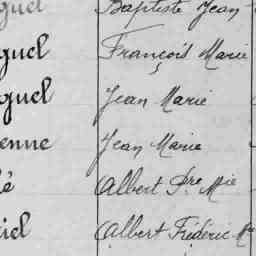 guel Baptiste Jean
guel François Marie
guel Jean Marie
enne Jean Marie
é Albert Pre Mie
iel Albert Fréderic Mie